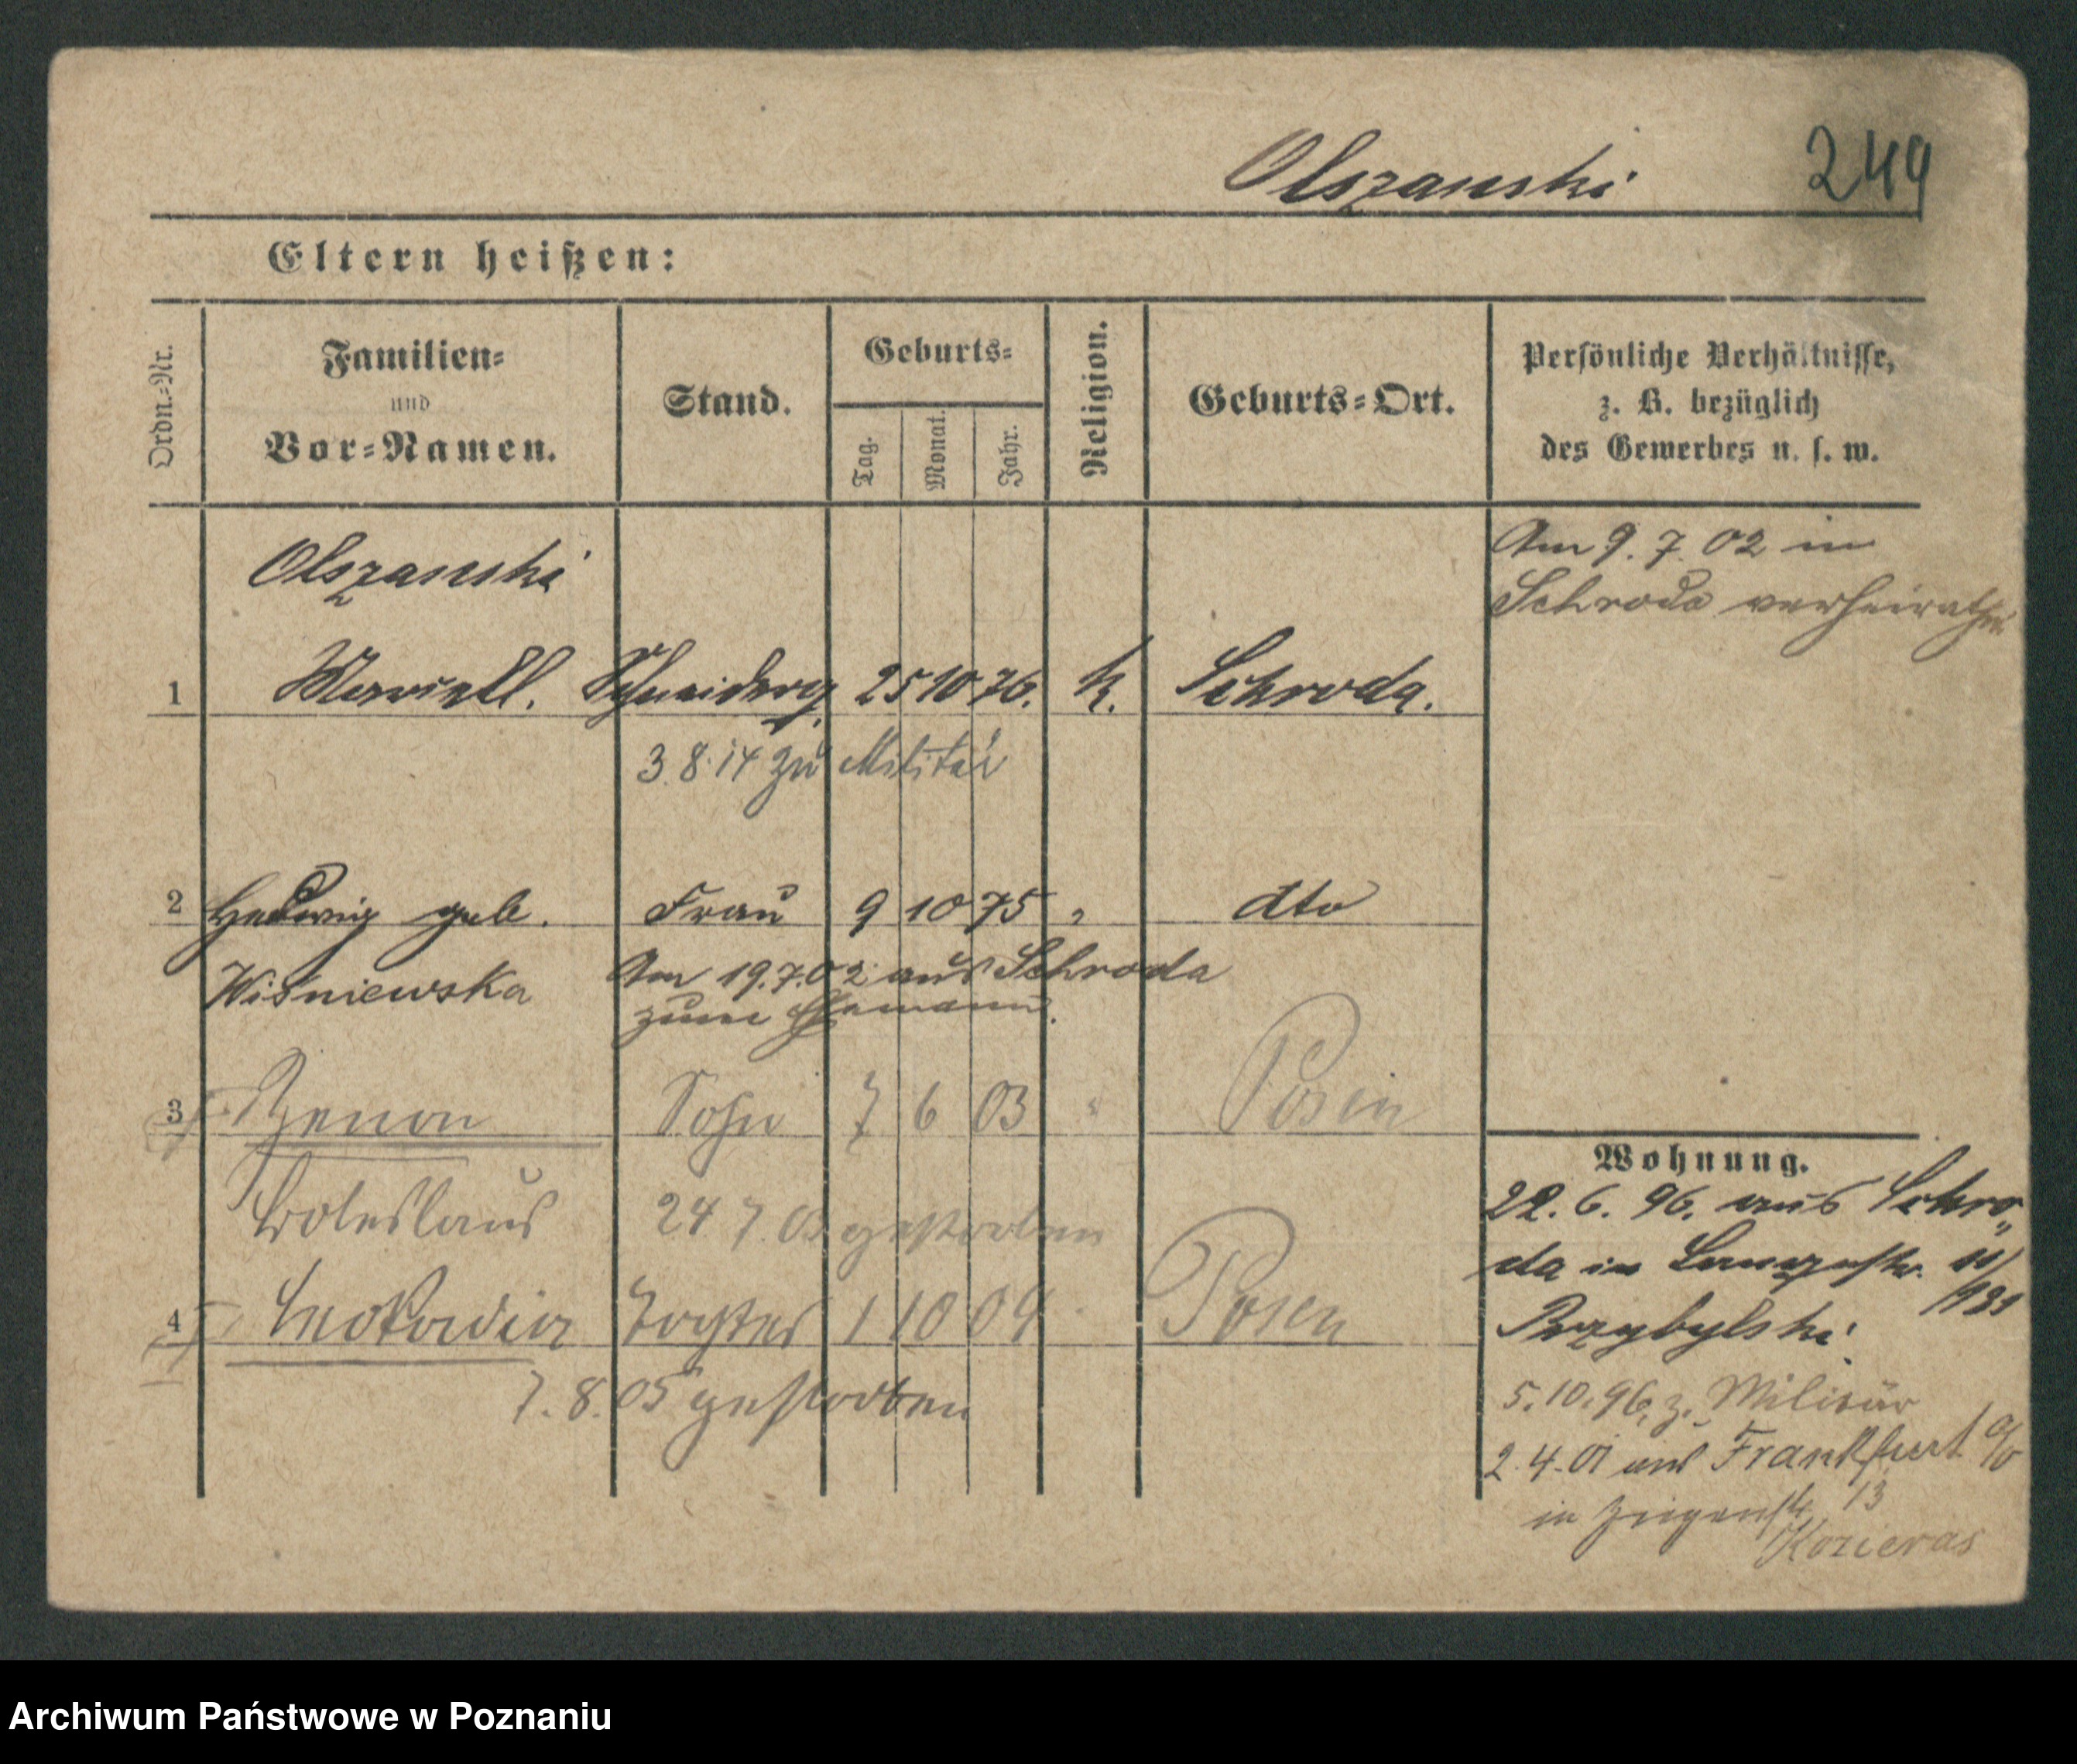 Olszanski 249
Eltern heißen:
Ordn.=Nr.
Familien=
und
Vor=Namen.
Stand.
Geburts=
Tag.
Monat.
Jahr.
Religion.
Geburts=Ort.
Persönliche Verhältnisse,
z. B. bezüglich
des Gewerbes u. s. w.
Olszanski
1 Marcell. 25 10 76. k. Schroda.
3.8.14 zu Militär
2 Hedwig geb. Frau 9 10 75 " dto
Wisniewska
Am 19.7.02 aus Schroda
zum Ehemann.
3 Zenon Sohn 7 6 03 " Posen
Boleslaus 24 7 gestorben
4 Leokadia Tochter 1 10 04 Posen
7.8.05 gestorben
Am 9.7.02 in
Schroda verheirathet
Wohnung.
22.6.96. aus Schro„
da in Langestr. 11/
Przybylski
5.10.96. z. Militär
2.4.01 aus Frankfurt a/o
in 13